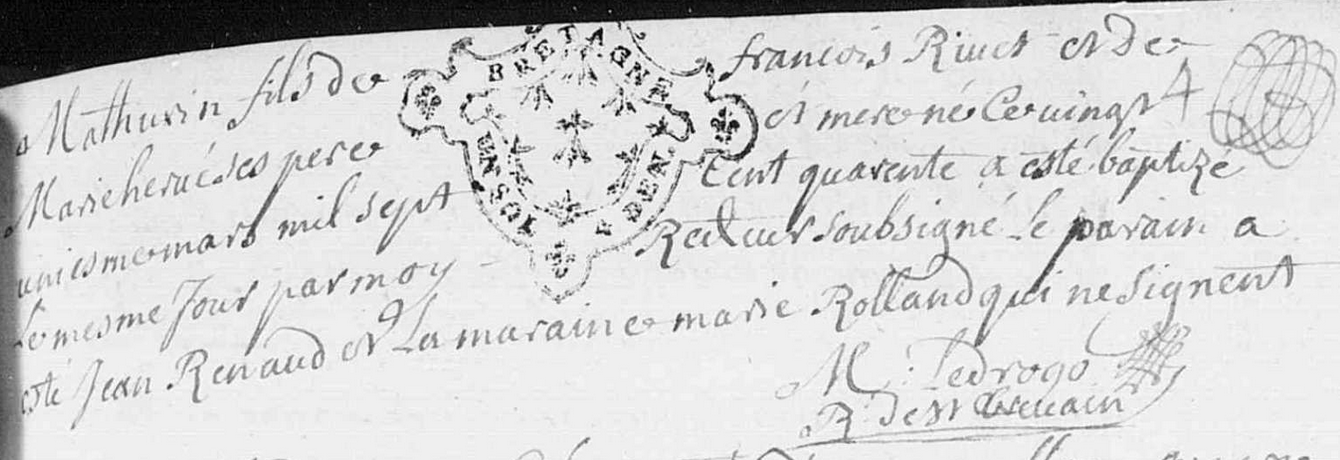 Mathurin fils de françois Rivet et de
Marie hervé ses pere et mere né le vingt 4
uniesme mars mil sept cent quarente a esté baptizé
le mesme Jour par moy Recteur soubsigné Le parain a
esté Jean Renaud et La maraine marie Rolland qui ne signent
M: Ledrogo
R: de st
BRETAGNE
UN SOL
A DEN.